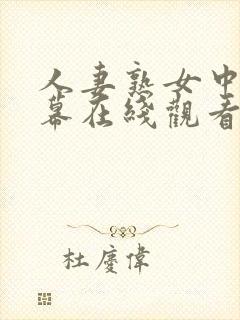 人妻熟女中
幕在綫觀看
杜慶偉